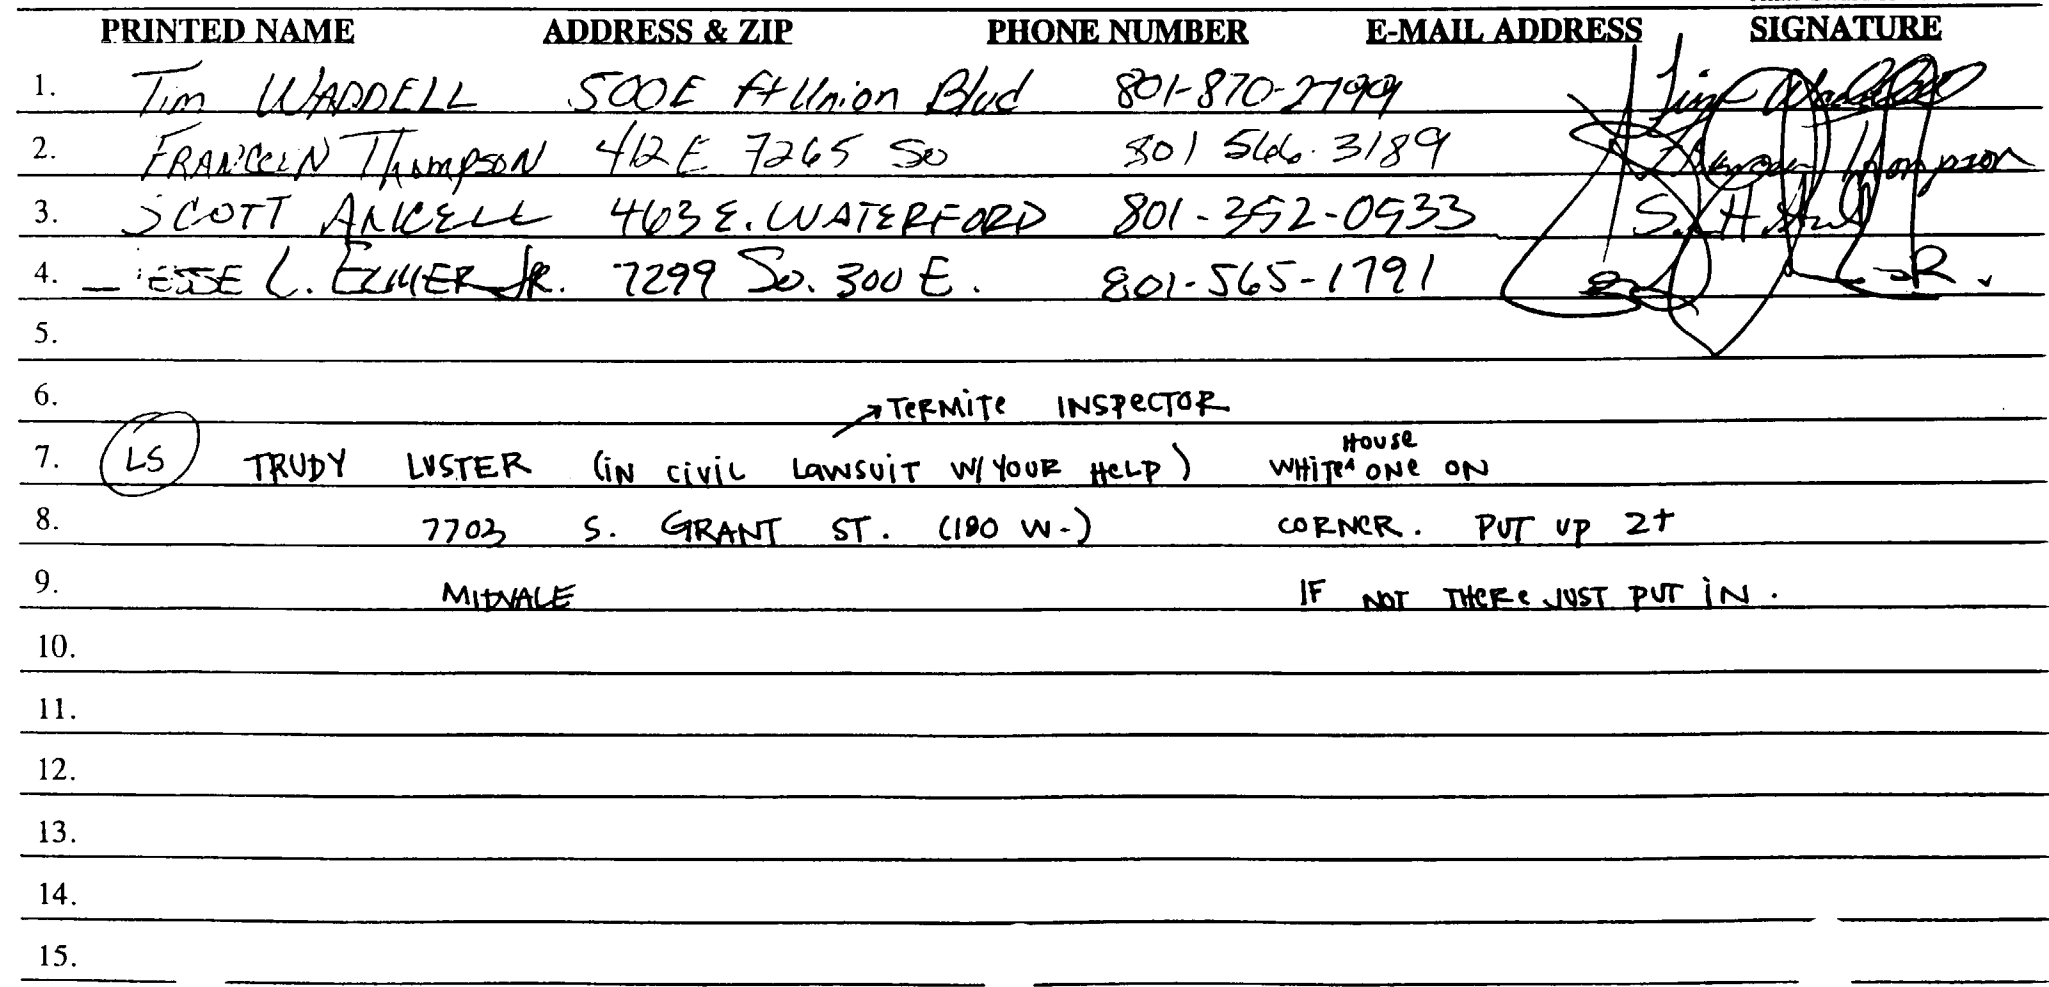 PRINTED NAME ADDRESS & ZIP PHONE NUMBER E-MAIL ADDRESS SIGNATURE
1. Tim WADDELL 500 E Ft Union Blvd 801-870-2799 Tim Waddell
2. Thompson 412 E 7265 So 801 566.3189 Thompson
3. SCOTT 463 E. WATERFORD 801-352-0533 S.
4. L. JR. 7299 So. 300 E. 801-565-1791 JR.
5.
6. TERMITE INSPECTOR
HOUSE
7. LS TRUDY LUSTER (IN CIVIL LAWSUIT W/ YOUR HELP) WHITE ONE ON
8. 7703 S. GRANT ST. (180 W.) CORNER. PUT UP 2+
9. MIDVALE IF NOT THERE JUST PUT IN.
10.
11.
12.
13.
14.
15.